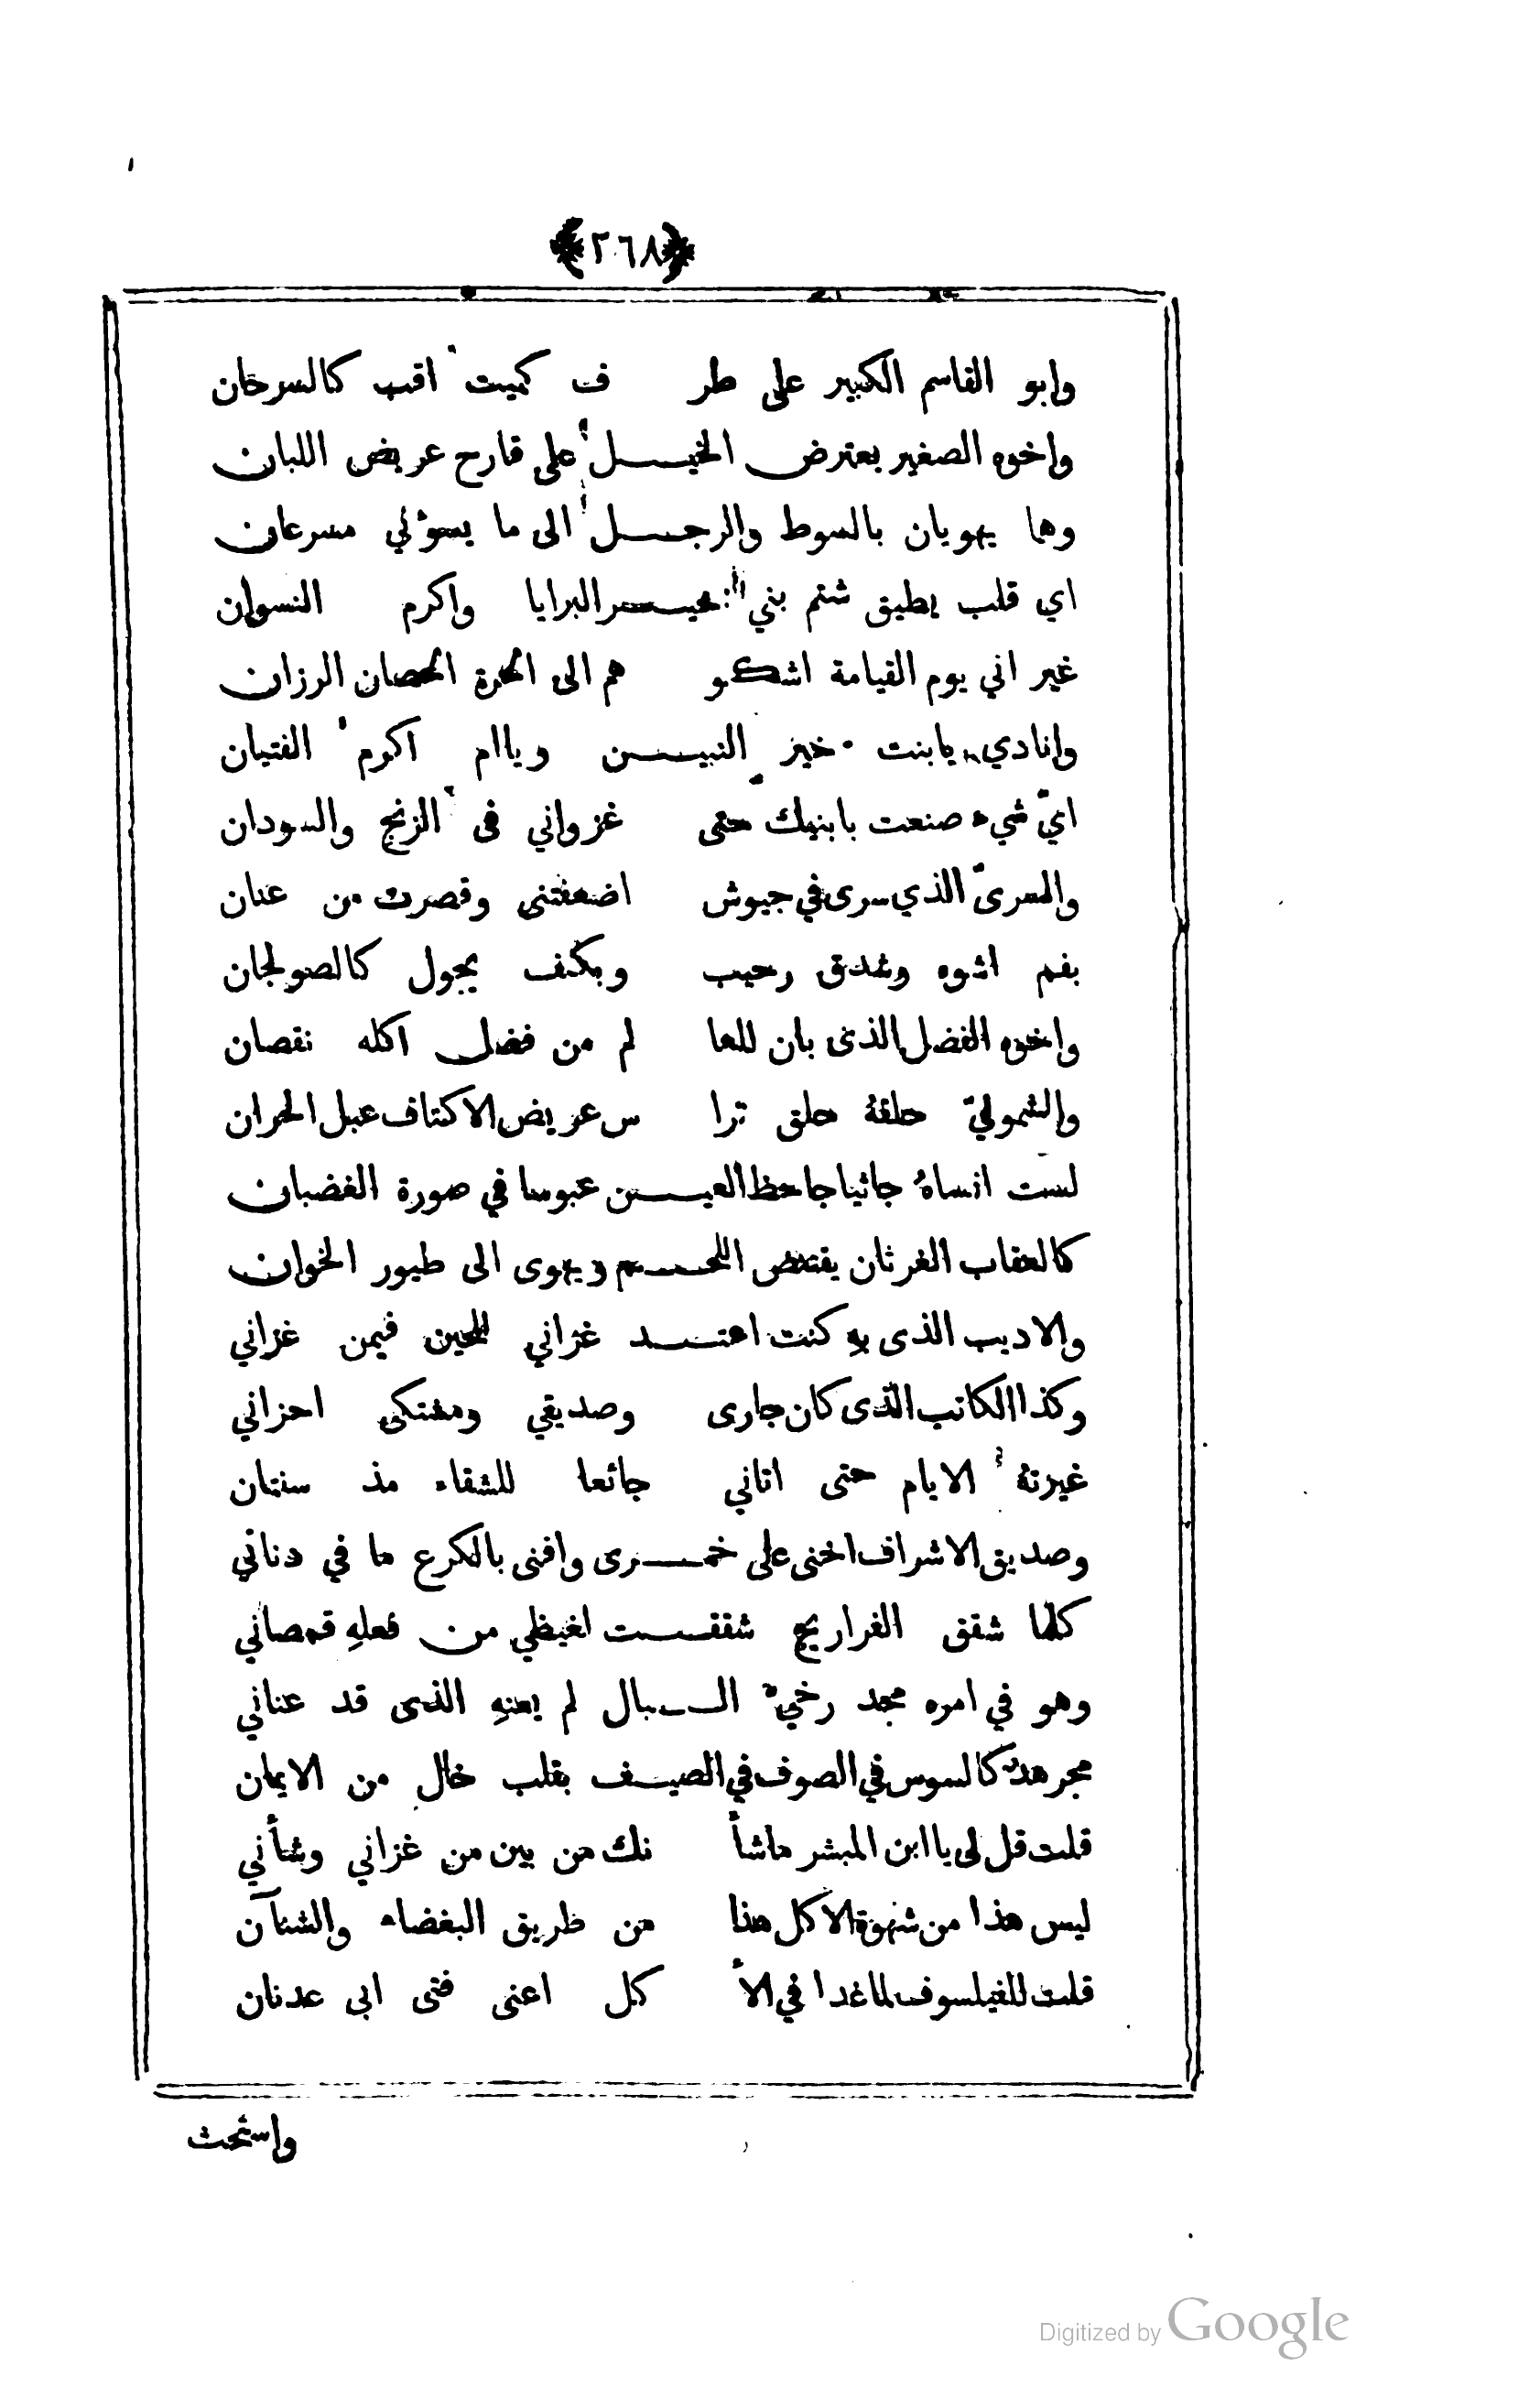 ﴿٢٦٨﴾
وابو القاسم الكبير على طر ف كميت اقب كالسرحان
واخوه الصغير يعترض الخيـــل على قارح عريض اللبان
وهما يهويان بالسوط والرجـــل الى ما يسوٴني مسرعان
اي قلب يطيق شتم بني خيـــر البرايا واكرم النسوان
غير اني يوم القيامة اشكو هم الى الحرة الحصان الرزان
وانادي يابنت خير النبيـــن وياام اكرم الفتيان
ايّ شيء صنعت بابنيك حتى غزواني في الزنج والسودان
والسريّ الذي سرى في جيوش اضعفتني وقصرت من عنان
بفم اشوه وشدق رحيب وبكف يجول كالصولجان
واخوه الفضل الذى بان للعا لم من فضل اكله نقصان
والشموليّ حلقة حلق ترا س عريض الاكتاف عبل الجران
لست انساهُ جاثيا جاحظ العيـــن عبوسا في صورة الغضبان
كالعقاب الغرثان يقتنص اللحـــم ويهوى الى طيور الخوان
والاديب الذى بهِ كنت اعتـــد غزاني للحين فيمن غزاني
وكذا الكاتب الذى كان جارى وصديقي ومشتكى احزاني
غيرتهُ الايام حتى اتاني جائعا للشقاء مذ سنتان
وصديق الاشراف اخنى على خمـــرى وافنى بالكرع ما في دناني
كلما شقق الفراريج شققـــت لغيظي من فعلهِ قمصاني
وهو في امره مجد رخيّ الـــبال لم يعنهِ الذى قد عناني
مجرهدّ كالسوس في الصوف في الصيـــف بقلب خال من الايمان
قلت قل لى ياابن المبشر ماشأ نك من بين من غزاني وشأني
ليس هذا من شهوة الاكل هذا من طريق البغضاء والشنآن
قلت للفيلسوف لما غدا في الأ كل اعنى فتى ابى عدنان
واستحث
Digitized by Google